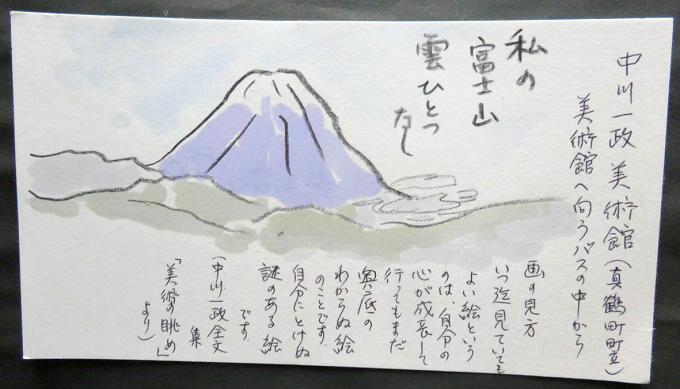 中川一政 美術館（真鶴町町立）
美術館へ向うバスの中から
私の
富士山
雲ひとつ
なし
画の見方
いつ迄見ていても
よい絵という
のは、自分の
心が成長して
行ってもまだ
奥底の
わからぬ絵
のことです。
自分にとけぬ
謎のある絵
です。
（中川一政全文
集
「美術の眺め」
より）